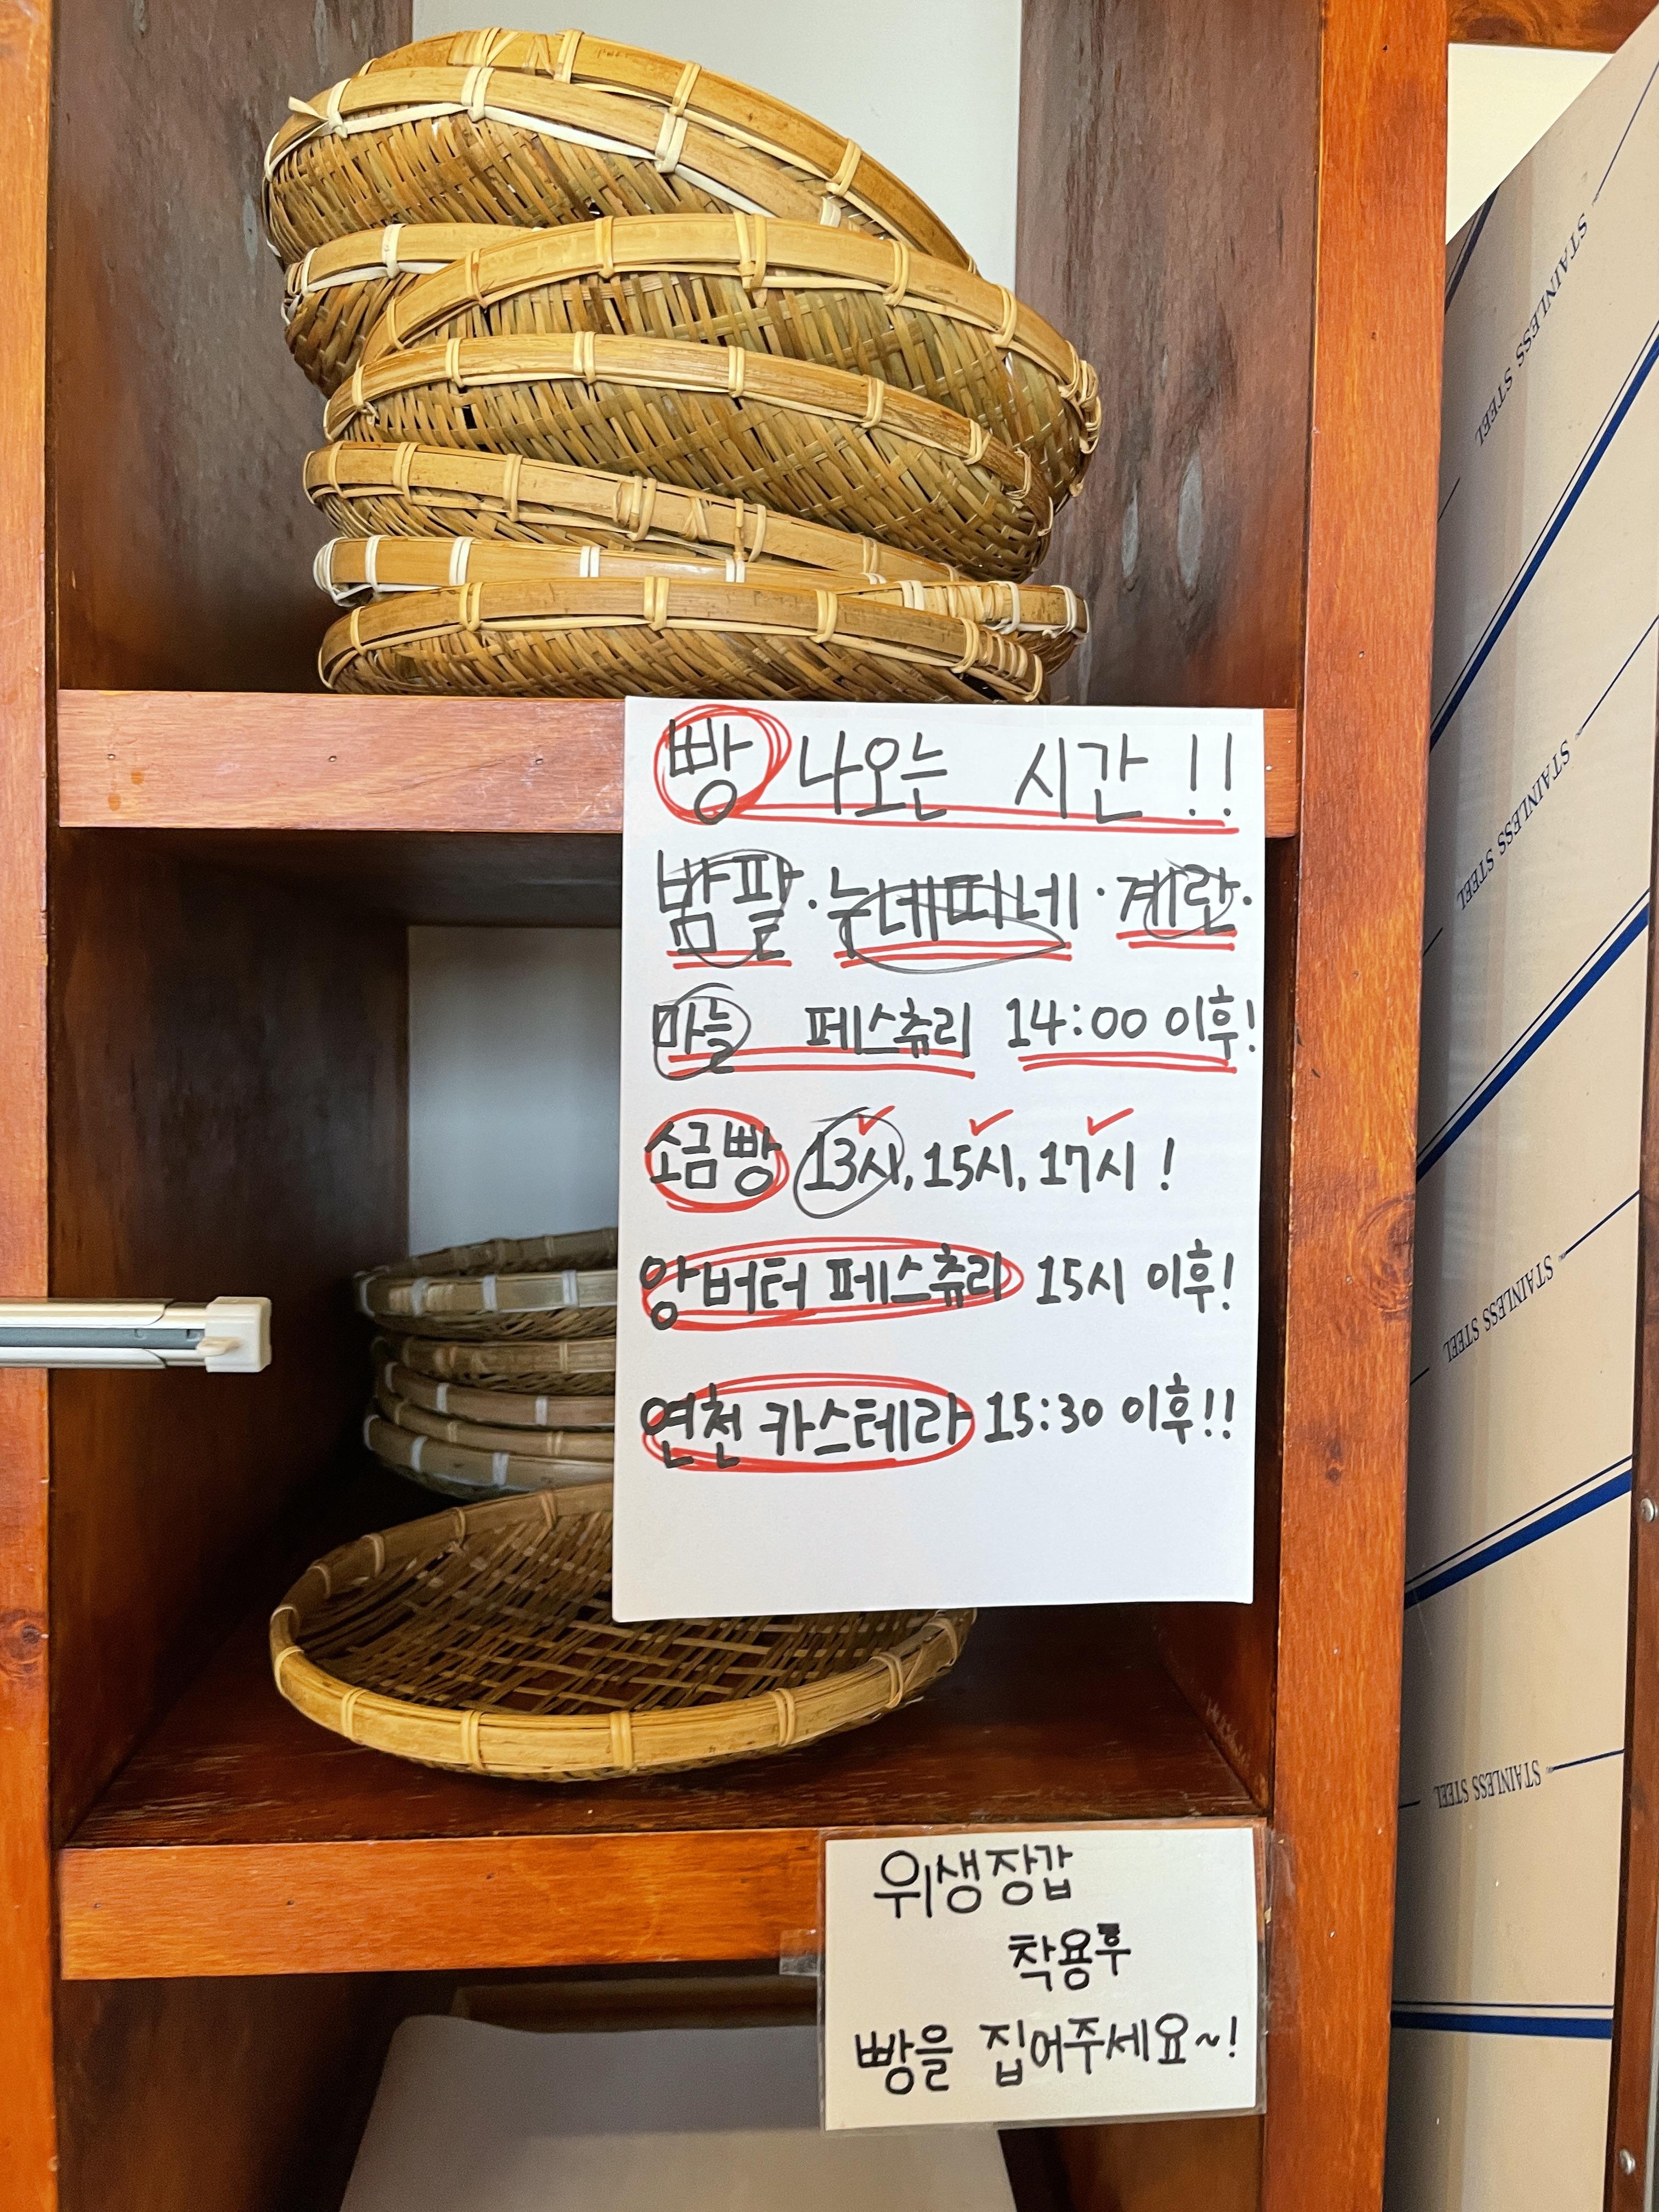 빵 나오는 시간!!
밤팥·뉴네띠네·계란·
마늘 페스츄리 14:00 이후!
소금빵 13시, 15시, 17시!
앙버터 페스츄리 15시 이후!
연천 카스테라 15:30 이후!!
위생장갑
착용후
빵을 집어주세요~!
STAINLESS STEEL
STAINLESS STEEL
STAINLESS STEEL
STAINLESS STEEL